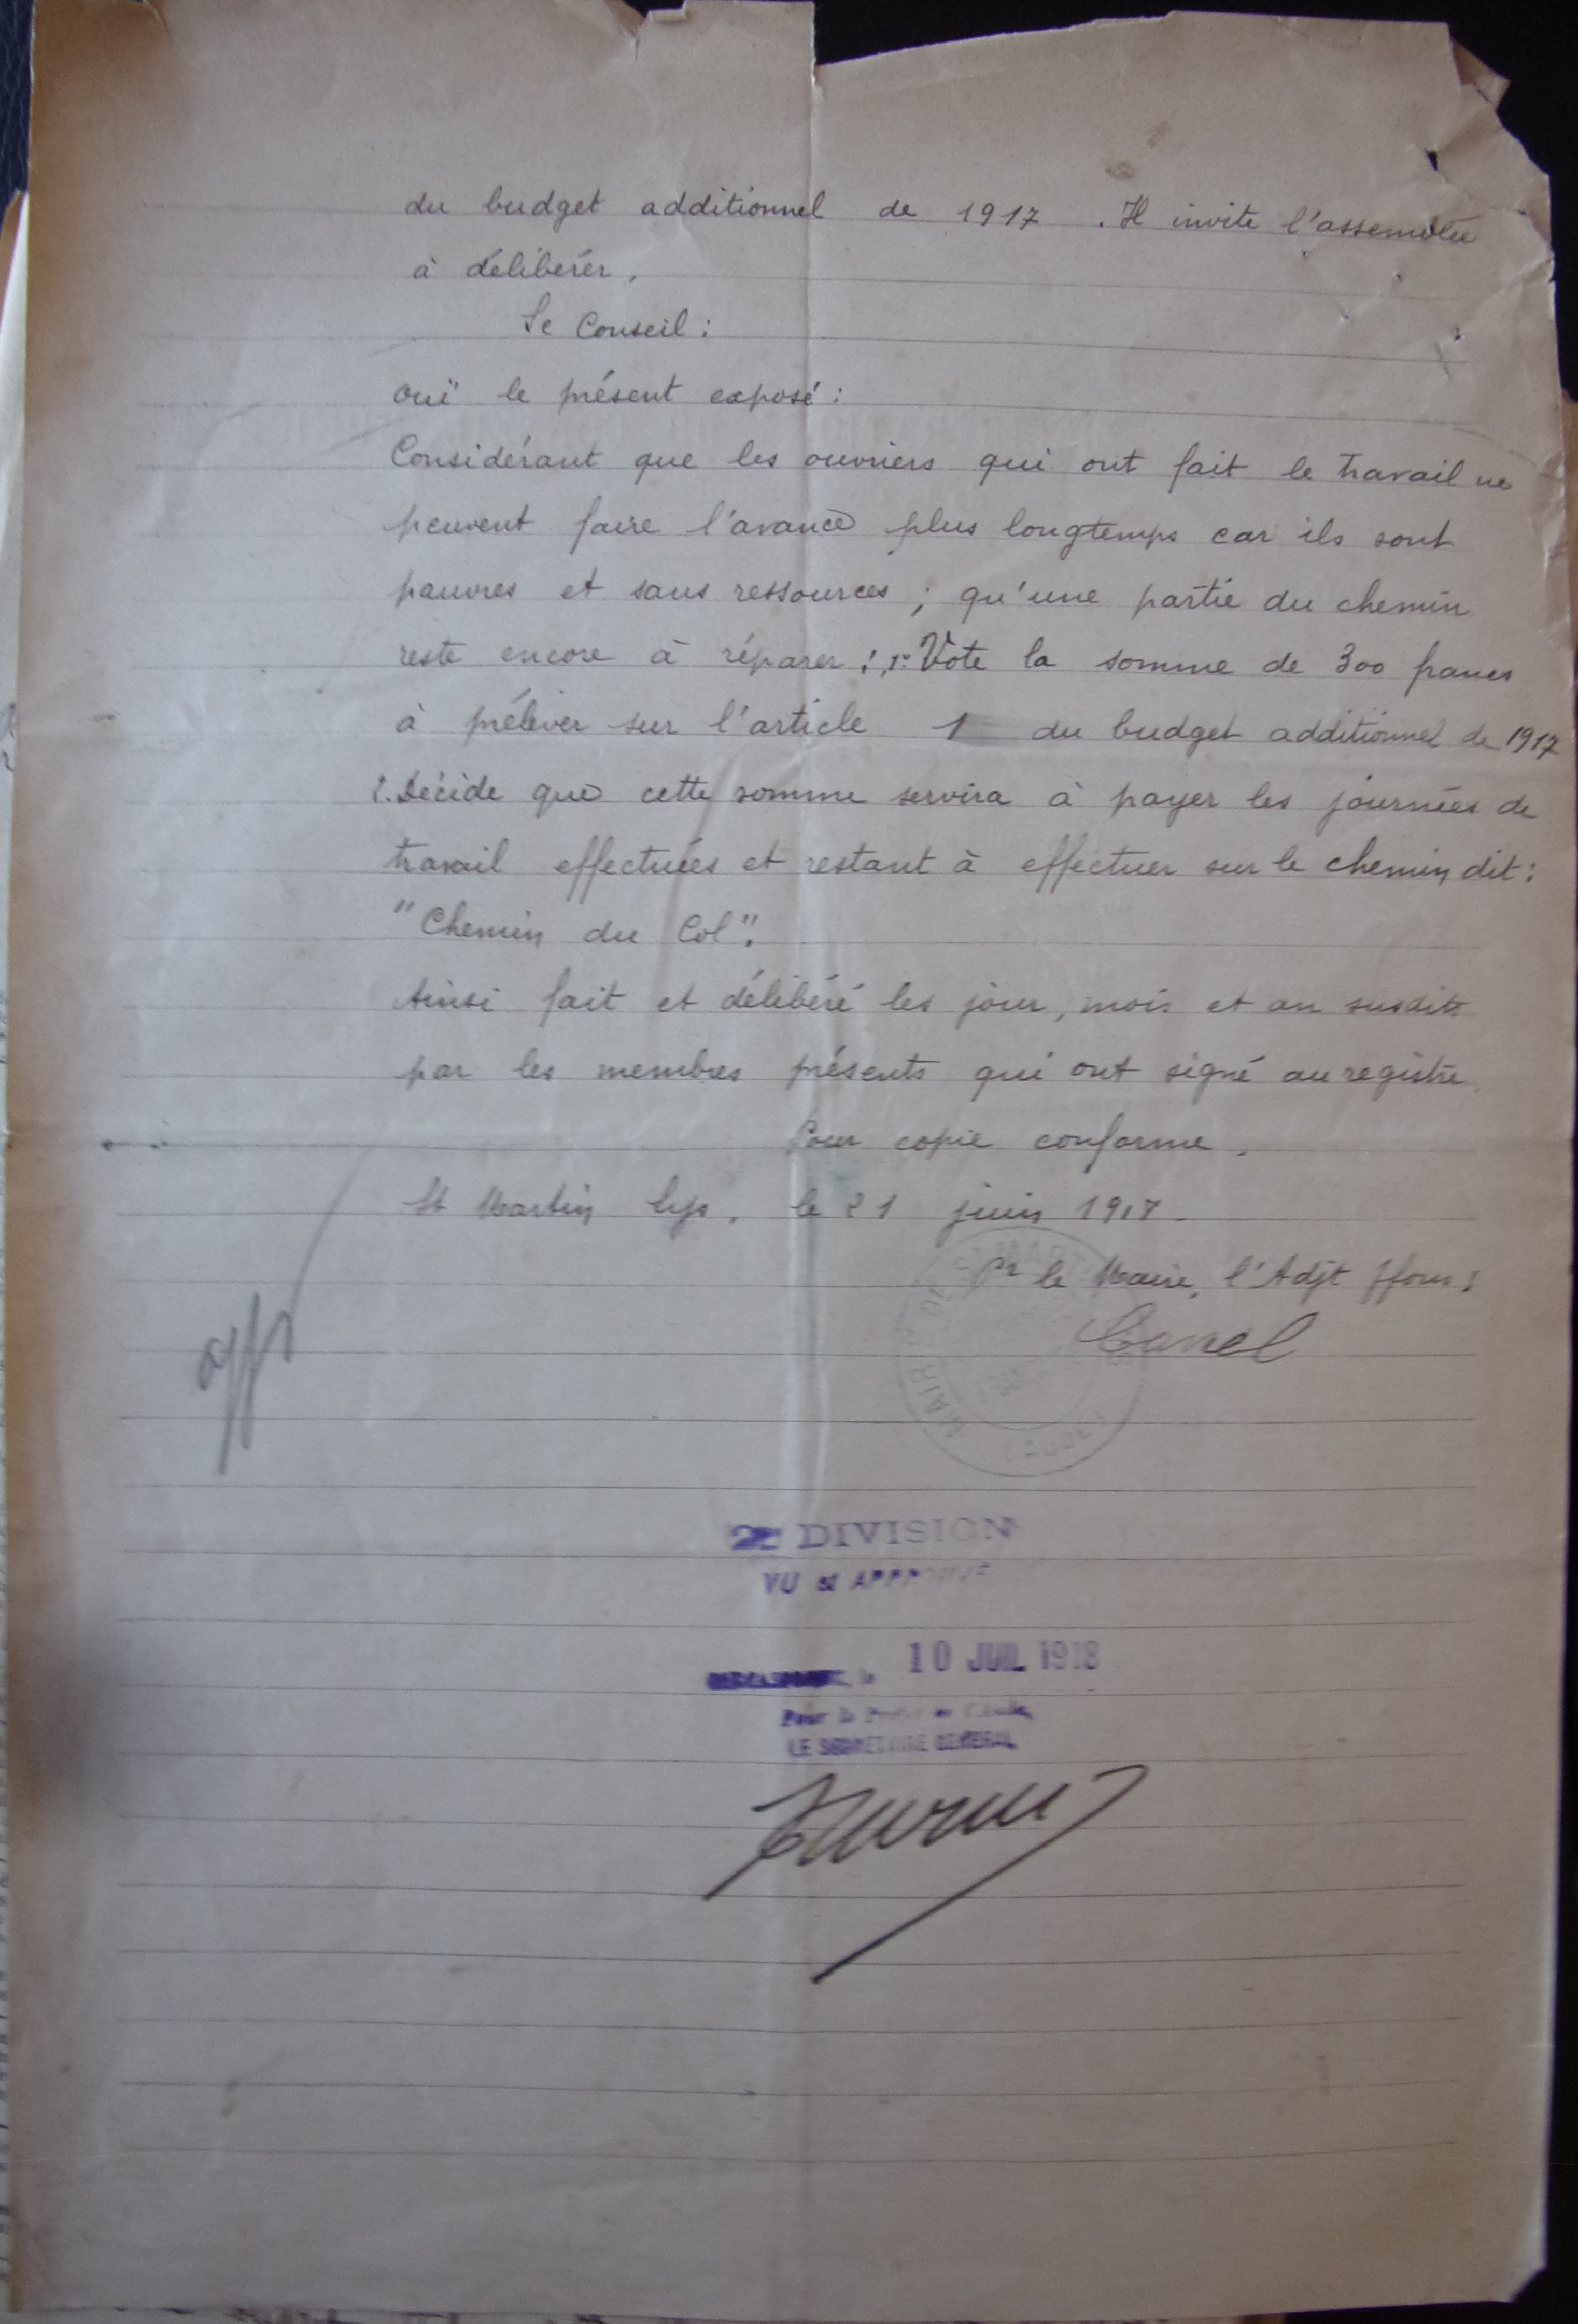 du budget additionnel de 1917. Il invite l'assemblée
à délibérer.
Le Conseil :
Ouï le présent exposé :
Considérant que les ouvriers qui ont fait le travail ne
peuvent faire l'avance plus longtemps car ils sont
pauvres et sans ressources ; qu'une partie du chemin
reste encore à réparer ; 1º Vote la somme de 300 francs
à préléver sur l'article 1 du budget additionnel de 1917
2. Décide que cette somme servira à payer les journées de
travail effectuées et restant à effectuer sur le chemin dit :
"Chemin du Col".
Ainsi fait et délibéré les jour, mois et an susdits
par les membres présents qui ont signé au registre.
Pour copie conforme.
St Martin Lys, le 21 juin 1917.
Pr le Maire, l'Adjt ffons :
MAIRIE DE ST MART
(AUDE)
2e DIVISION
VU et APPROUVÉ
, le 10 JUIL 1918
Pour le Préfet de l'Aude,
LE SECRÉTAIRE GÉNÉRAL